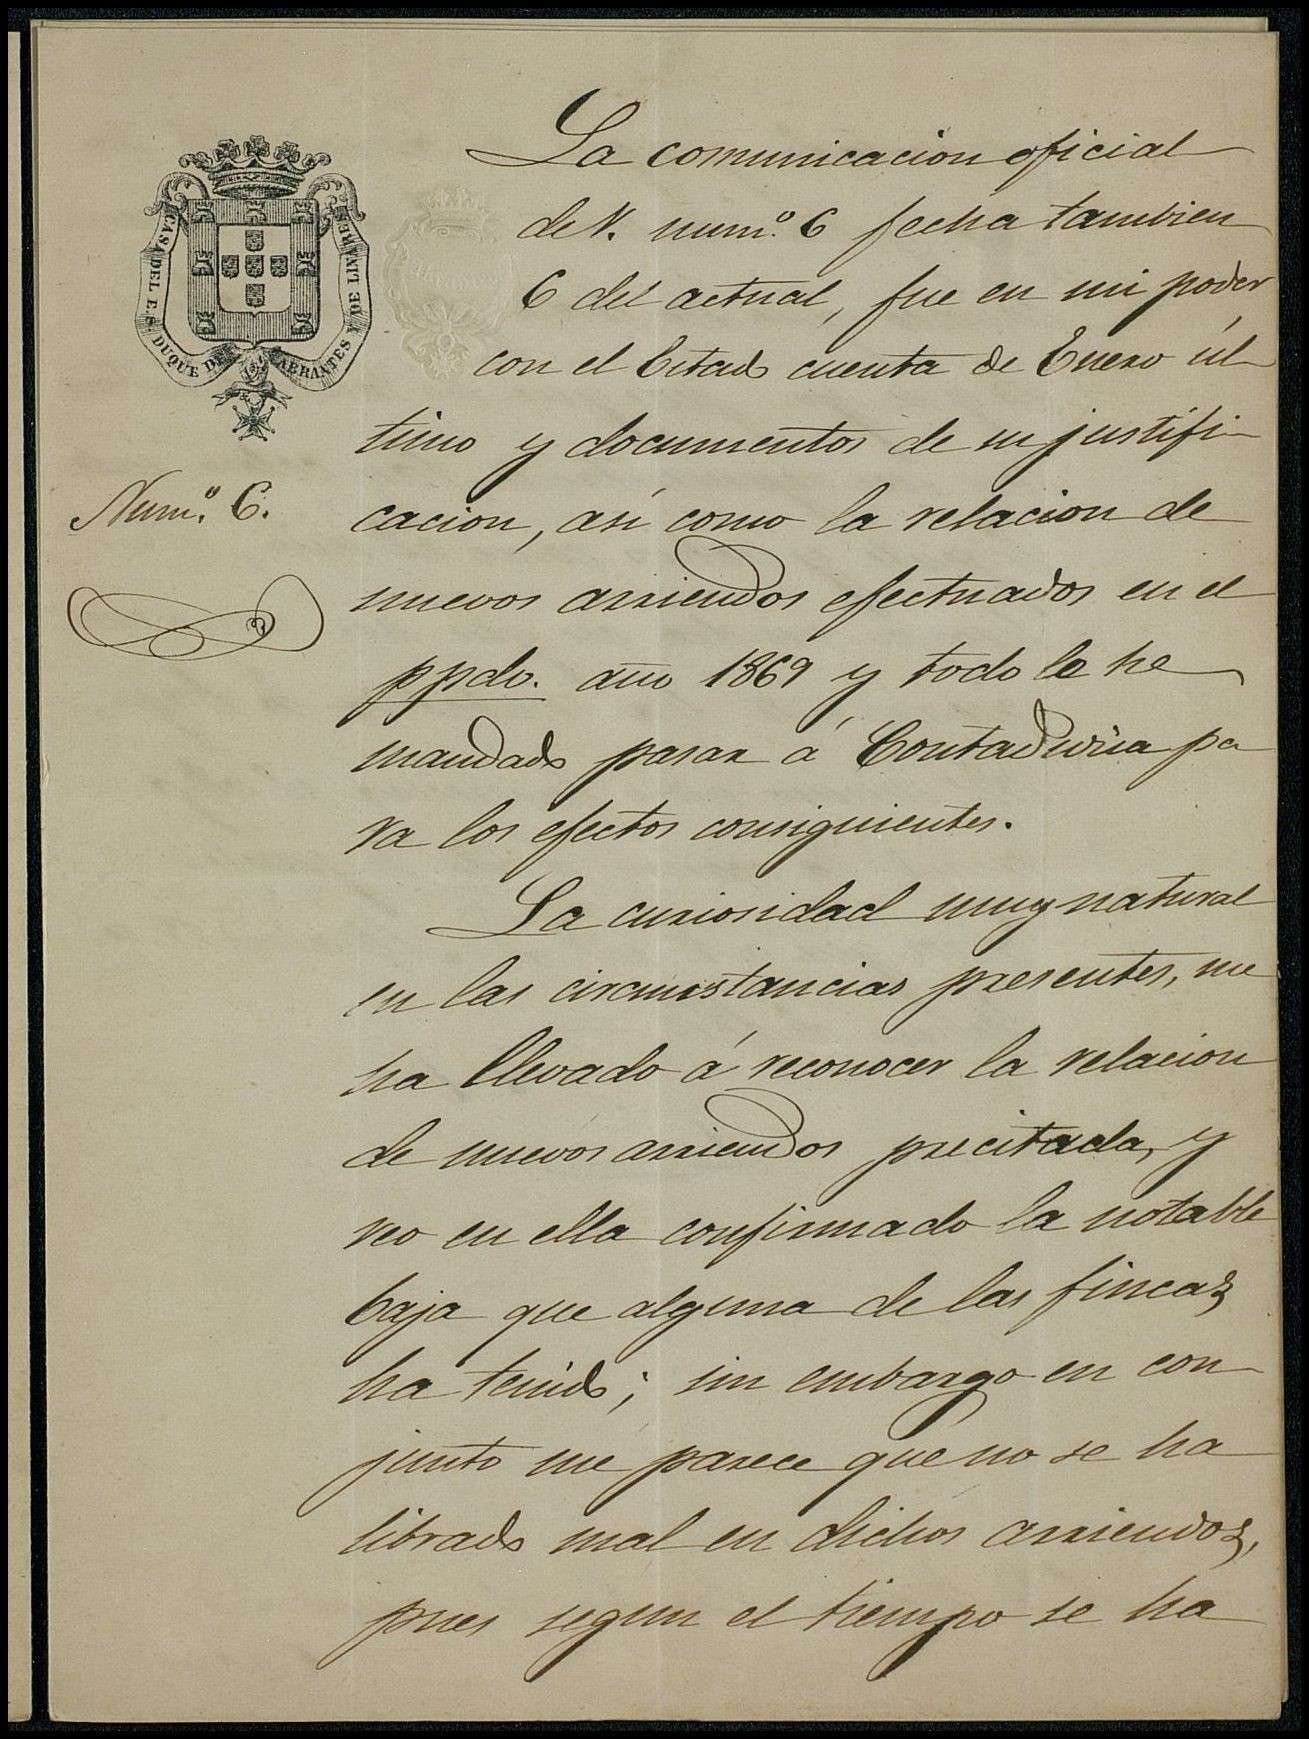 CASA DEL E. S. DUQUE DE ABRANTES Y DE LINARES
Num.º 6.
La comunicacion oficial
de V. num.º 6 fecha tambien
6 del actual, fue en mi poder
con el Estado cuenta de Enero úl
timo y documentos de su justifi-
cacion, así como la relacion de
nuevos arriendos efectuados en el
ppdo. año 1869 y todo lo he
mandado pasar á Contaduria pa
ra los efectos consiguientes.
La curiosidad muy natural
en las circunstancias presentes, me
ha llevado á reconocer la relacion
de nuevos arriendos precitada, y
veo en ella confirmado la notable
baja que alguna de las fincas
ha tenido; sin embargo en con-
junto me parece que no se ha
librado mal en dichos arriendos,
pues segun el tiempo se ha